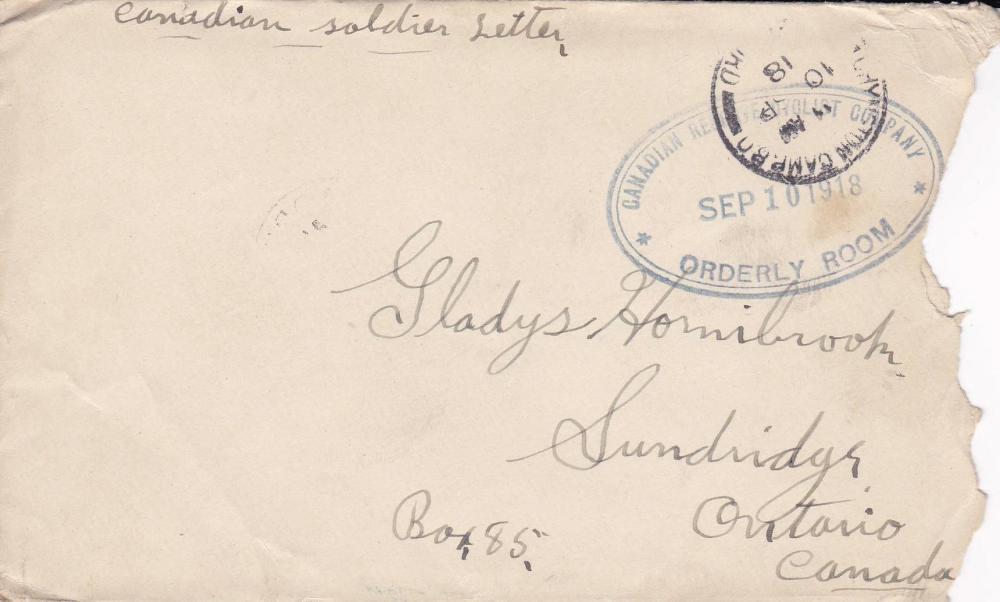 Canadian soldier Letter,
CANADIAN RESERVE CYCLIST COMPANY
SEP 10 1918
ORDERLY ROOM
CAMP.B.O
10
18
Gladys Hornibrook,
Sundridge
Ontario
Box 85,
Canada